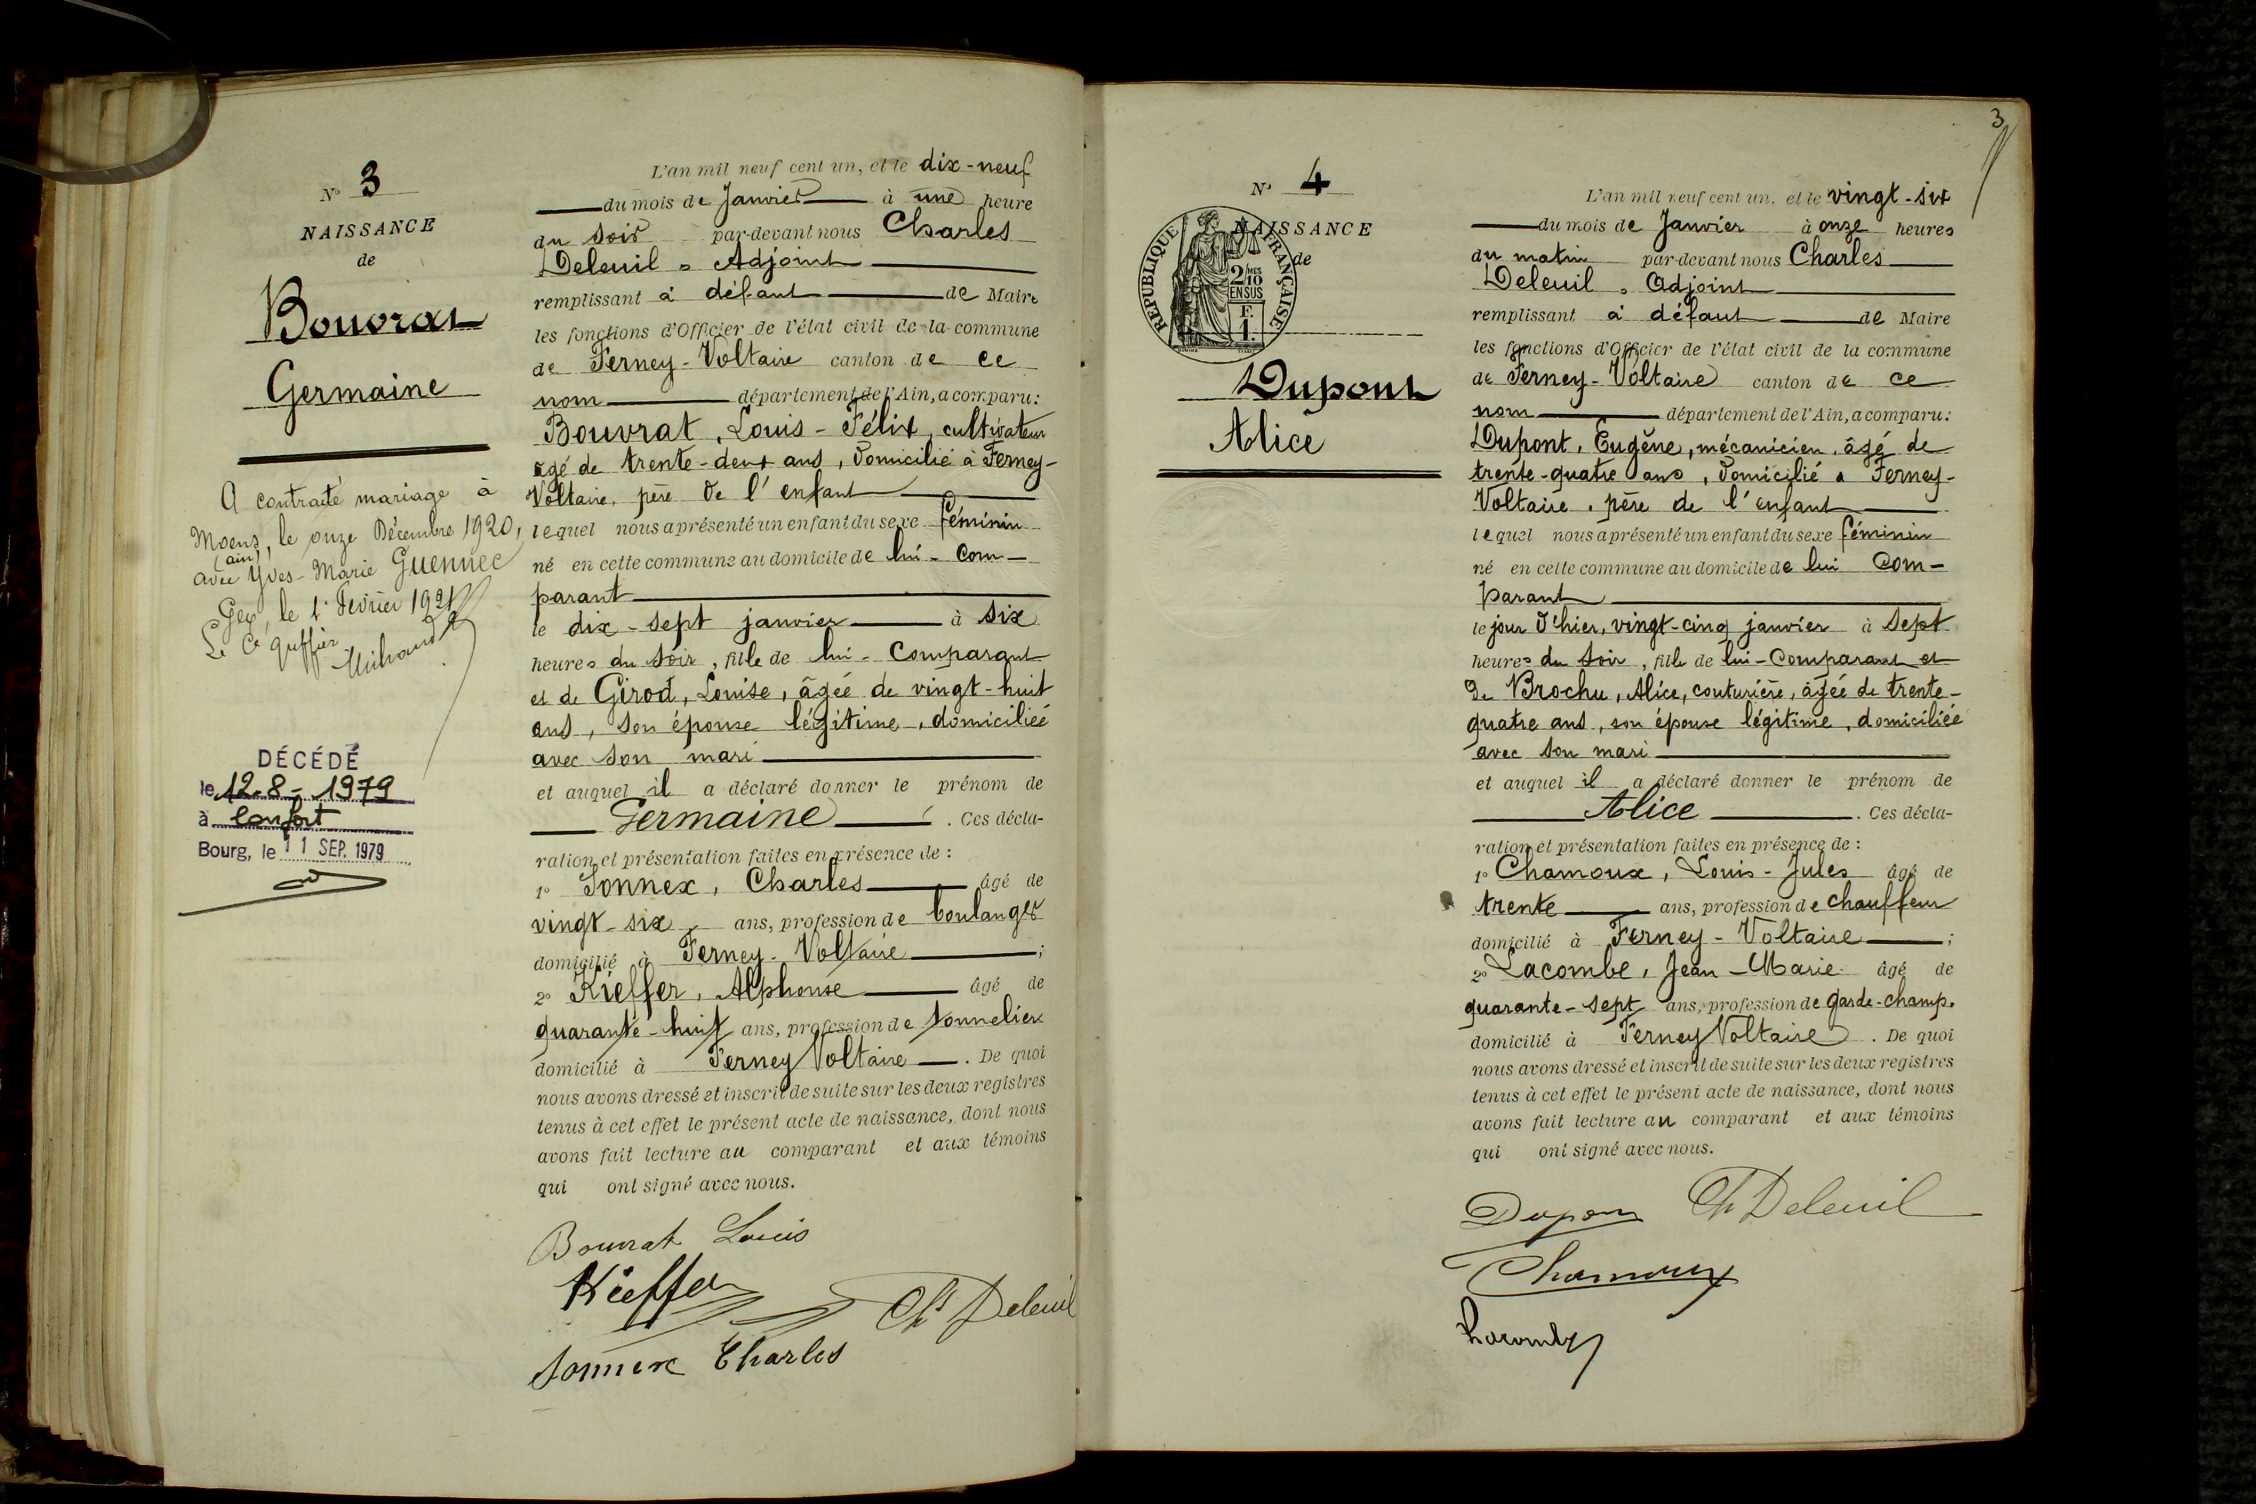 N° 3
NAISSANCE
de
Bouvrat
Germaine
A contracté mariage à
Moens, le onze Décembre 1920,
(ain)
avec Yves-Marie Guennec
Gex, le 1er Février 1921
Le Cis greffier
DÉCÉDÉ
le 12-8-1979
à Confort
Bourg, le 11 SEP. 1979
L'an mil neuf cent un, et le dix-neuf
du mois de Janvier à une heure
du soir par-devant nous Charles
Deleuil, Adjoint
remplissant à défaut de Maire
les fonctions d'Officier de l'état civil de la commune
de Ferney-Voltaire canton de ce
nom département de l'Ain, a comparu:
Bouvrat, Louis-Félix, cultivateur
agé de trente-deux ans, domicilié à Ferney-
Voltaire, père de l'enfant
lequel nous a présenté un enfant du sexe féminin
né en cette commune au domicile de lui-com-
parant
le dix-sept janvier à six
heures du soir, fille de lui-Comparant
et de Girod, Louise, âgée de vingt-huit
ans, son épouse légitime, domiciliée
avec son mari
et auquel il a déclaré donner le prénom de
Germaine . Ces décla-
ration et présentation faites en présence de :
1° Sonnex, Charles âgé de
vingt-six ans, profession de boulanger
domicilié à Ferney-Voltaire ;
2° Kieffer, Alphonse âgé de
quarante-huit ans, profession de tonnelier
domicilié à Ferney Voltaire . De quoi
nous avons dressé et inscrit de suite sur les deux registres
tenus à cet effet le présent acte de naissance, dont nous
avons fait lecture au comparant et aux témoins
qui ont signé avec nous.
Bouvrat Louis
Kieffer
Chs Deleuil
Sonnex Charles
3
N° 4
NAISSANCE
de
RÉPUBLIQUE FRANÇAISE
2/10 MES
EN SUS
F.
1.
Dupont
Alice
L'an mil neuf cent un, et le vingt-six
du mois de Janvier à onze heures
du matin par-devant nous Charles
Deleuil, Adjoint
remplissant à défaut de Maire
les fonctions d'Officier de l'état civil de la commune
de Ferney-Voltaire canton de ce
nom département de l'Ain, a comparu:
Dupont, Eugène, mécanicien, âgé de
trente-quatre ans, domicilié a Ferney-
Voltaire, père de l'enfant
lequel nous a présenté un enfant du sexe féminin
né en cette commune au domicile de lui Com-
parant
le jour d'hier, vingt-cinq janvier à sept
heures du soir, fille de lui-Comparant et
de Brochu, Alice, couturière, âgée de trente-
quatre ans, son épouse légitime, domiciliée
avec son mari
et auquel il a déclaré donner le prénom de
Alice . Ces décla-
ration et présentation faites en présence de :
1° Chamoux, Louis-Jules âgé de
trente ans, profession de chauffeur
domicilié à Ferney-Voltaire ;
2° Lacombe, Jean-Marie âgé de
quarante-sept ans, profession de garde-champ.
domicilié à Ferney Voltaire . De quoi
nous avons dressé et inscrit de suite sur les deux registres
tenus à cet effet le présent acte de naissance, dont nous
avons fait lecture au comparant et aux témoins
qui ont signé avec nous.
Dupont Ch Deleuil
Chamoux
Lacombe